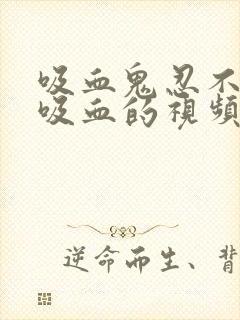 吸血鬼忍不
吸血的視頻
逆命而生、背